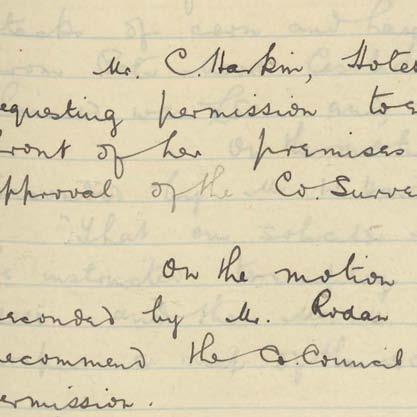 Mr. C. Harkin, Hotel
equesting permission to e
front of her premises
pproval of the Co. Surve
On the motion
seconded by Mr. Rodan
recommend the Co. Council
ermission.